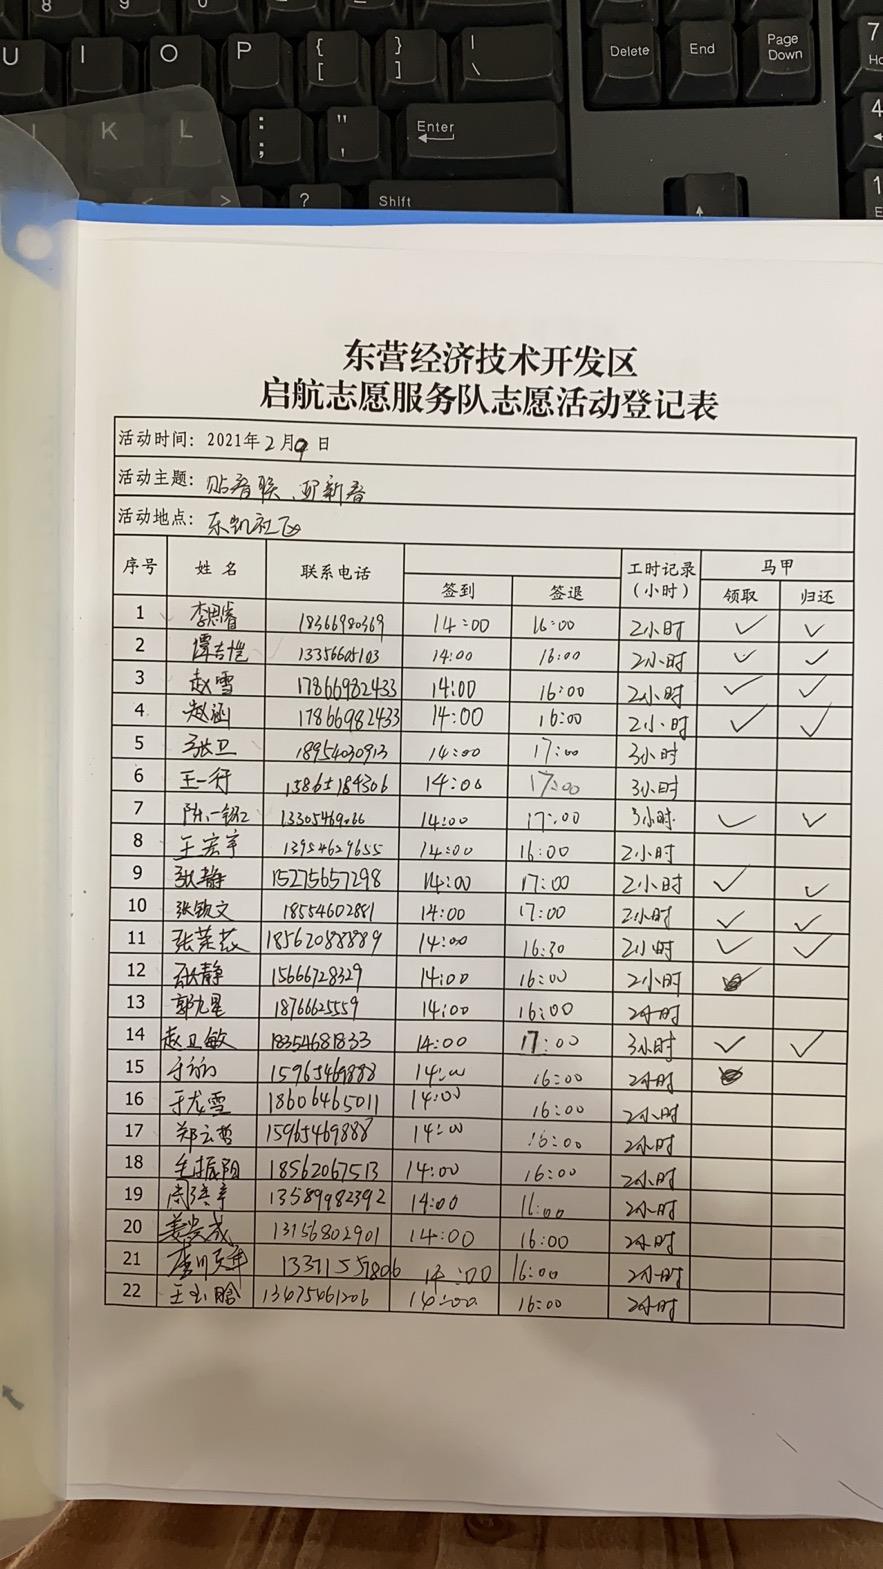 U I O P { [ } ] | \ Delete End Page Down 7
K L : ; " ' Enter 4
< > ? Shift 1
东营经济技术开发区
启航志愿服务队志愿活动登记表
活动时间: 2021年2月9日
活动主题: 贴春联、迎新春
活动地点: 东凯社区
序号 姓名 联系电话 签到 签退 工时记录(小时) 马甲 领取 归还
1 李思睿 18366980369 14:00 16:00 2小时 ✓ ✓
2 谭吉恺 13356605103 14:00 16:00 2小时 ✓ ✓
3 赵雪 17866982433 14:00 16:00 2小时 ✓ ✓
4 赵涵 17866982433 14:00 16:00 2小时 ✓ ✓
5 张卫 18954030913 14:00 17:00 3小时
6 王一行 15865184306 14:00 17:00 3小时
7 陈一 13305469066 14:00 17:00 3小时 ✓ ✓
8 王宏宇 13954629655 14:00 16:00 2小时
9 张静 15275657298 14:00 17:00 2小时 ✓ ✓
10 张钦文 18554602881 14:00 17:00 2小时 ✓ ✓
11 张 18562088889 14:00 16:30 2小时 ✓ ✓
12 张静 15666728329 14:00 16:00 2小时
13 郭九星 18766625559 14:00 16:00 2小时
14 赵卫敏 18354681833 14:00 17:00 3小时 ✓ ✓
15 于 15965469888 14:00 16:00 2小时
16 于龙雪 18606465011 14:00 16:00 2小时
17 郑云哲 15965469888 14:00 16:00 2小时
18 振阳 18562067513 14:00 16:00 2小时
19 周 13589982392 14:00 16:00 2小时
20 姜 成 13156802901 14:00 16:00 2小时
21 13371557806 14:00 16:00 2小时
22 王玉晗 13475461206 14:00 16:00 2小时